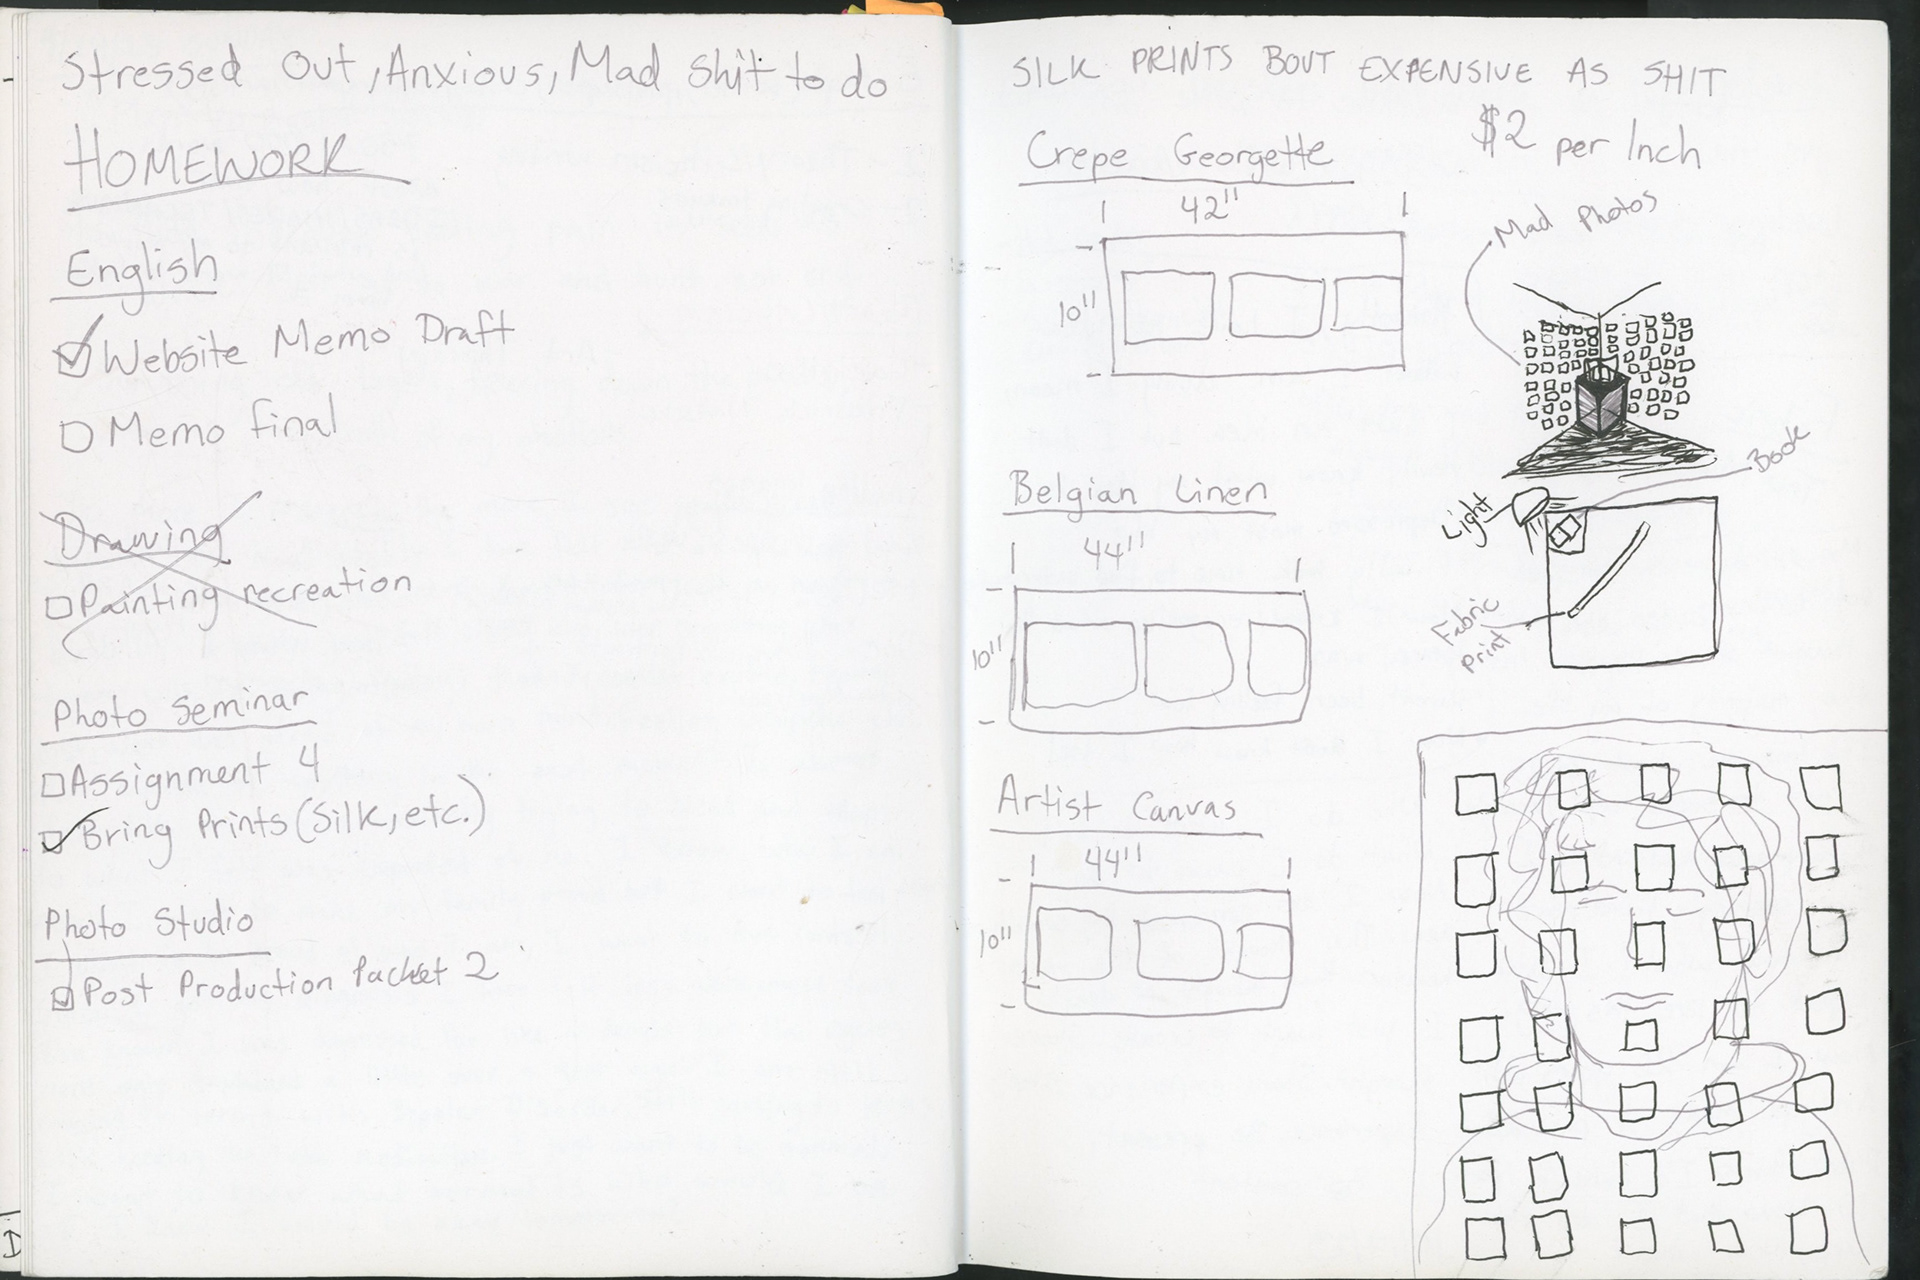 Stressed Out, Anxious, Mad shit to do
HOMEWORK
English
Website Memo Draft
Memo final
Drawing
Painting recreation
Photo Seminar
Assignment 4
Bring Prints (Silk, etc.)
Photo Studio
Post Production Packet 2
D
SILK PRINTS BOUT EXPENSIVE AS SHIT
$2 per Inch
Crepe Georgette
42"
10"
Mad Photos
Belgian Linen
44"
10"
Book
Light
Fabric
Print
Artist Canvas
44"
10"